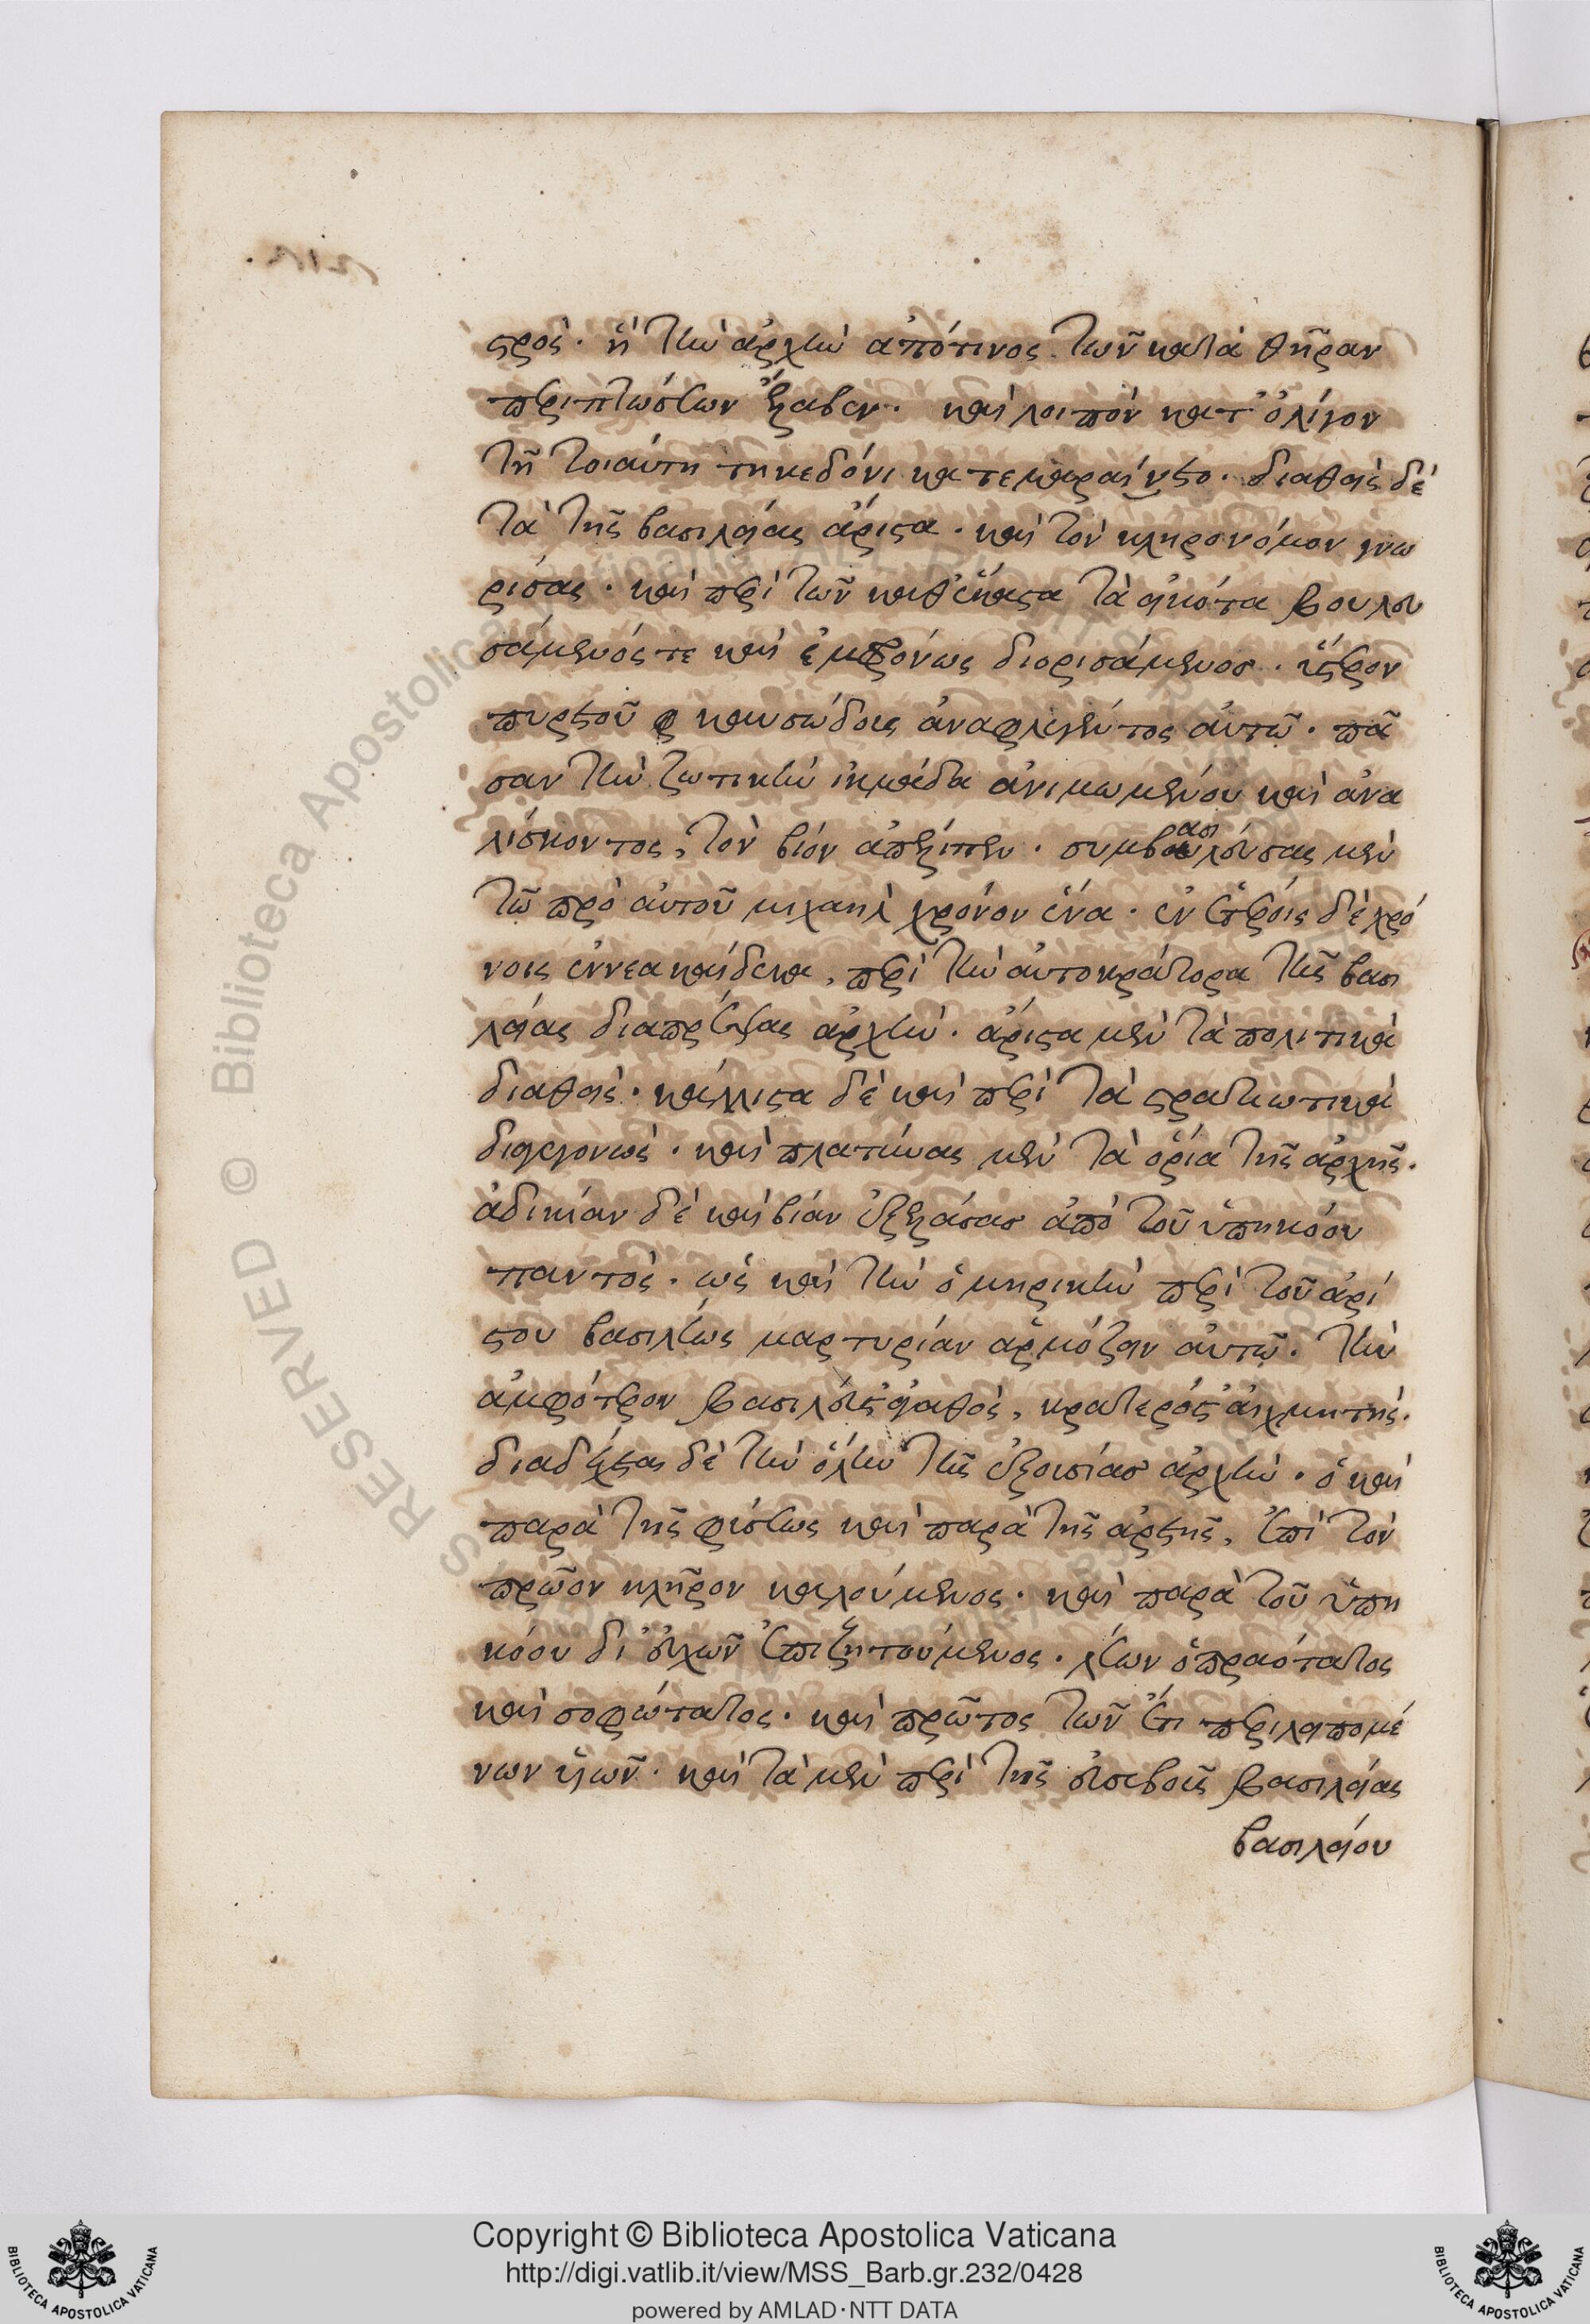 στρός· ἢ τὴν ἀρχὴν ἀπό τινος τῶν κατὰ θήραν
περιπτώσεων ἔλαβεν· καὶ λοιπὸν κατ' ὀλίγον
τῇ τοιαύτῃ τηκεδόνι κατεμαραίνετο· διαθεὶς δὲ
τὰ τῆς βασιλείας ἄριστα· καὶ τὸν κληρονόμον γνω
ρίσας· καὶ περὶ τῶν καθέκαστα τὰ εἰκότα βουλευ
σάμενός τε καὶ ἐμφρόνως διορισάμενος· ὕστερον
πυρετοῦ καυσώδους ἀναφλεγέντος αὐτῷ· πᾶ
σαν τὴν ζωτικὴν ἰκμάδα ἀνιμωμένου καὶ ἀνα
λίσκοντος, τὸν βίον ἀπέλιπεν· συμβασιλεύσας μὲν
τῷ πρὸ αὐτοῦ μιχαὴλ χρόνον ἕνα· ἐν ἑτέροις δὲ χρό
νοις ἐννεακαίδεκα, περὶ τὴν αὐτοκράτορα τῆς βασι
λείας διαπρέψας ἀρχήν· ἄριστα μὲν τὰ πολιτικὰ
διαθείς· κάλλιστα δὲ καὶ περὶ τὰ στρατιωτικὰ
διαγεγονώς· καὶ πλατύνας μὲν τὰ ὅρια τῆς ἀρχῆς·
ἀδικίαν δὲ καὶ βίαν ἐξελάσας ἀπὸ τοῦ ὑπηκόου
παντός· ὡς καὶ τὴν ὁμηρικὴν περὶ τοῦ ἀρί
στου βασιλέως μαρτυρίαν ἁρμόζειν αὐτῷ· τὴν
ἀμφότερον βασιλεύς τ' ἀγαθὸς, κρατερός τ' αἰχμητής·
διαδέχεται δὲ τὴν ὅλην τῆς ἐξουσίας ἀρχήν· ὁ καὶ
παρὰ τῆς φύσεως καὶ παρὰ τῆς ἀρετῆς, ἐπὶ τὸν
πρῷον κλῆρον καλούμενος· καὶ παρὰ τοῦ ὑπη
κόου δι' εὐχῶν ἐπιζητούμενος· λέων ὁ πραότατος
καὶ σοφώτατος· καὶ πρῶτος τῶν ἔτι περιλειπομέ
νων υἱῶν· καὶ τὰ μὲν περὶ τῆς εὐσεβοῦς βασιλείας
βασιλείου
Copyright © Biblioteca Apostolica Vaticana
http://digi.vatlib.it/view/MSS_Barb.gr.232/0428
powered by AMLAD·NTT DATA
BIBLIOTECA APOSTOLICA VATICANA
BIBLIOTECA APOSTOLICA VATICANA